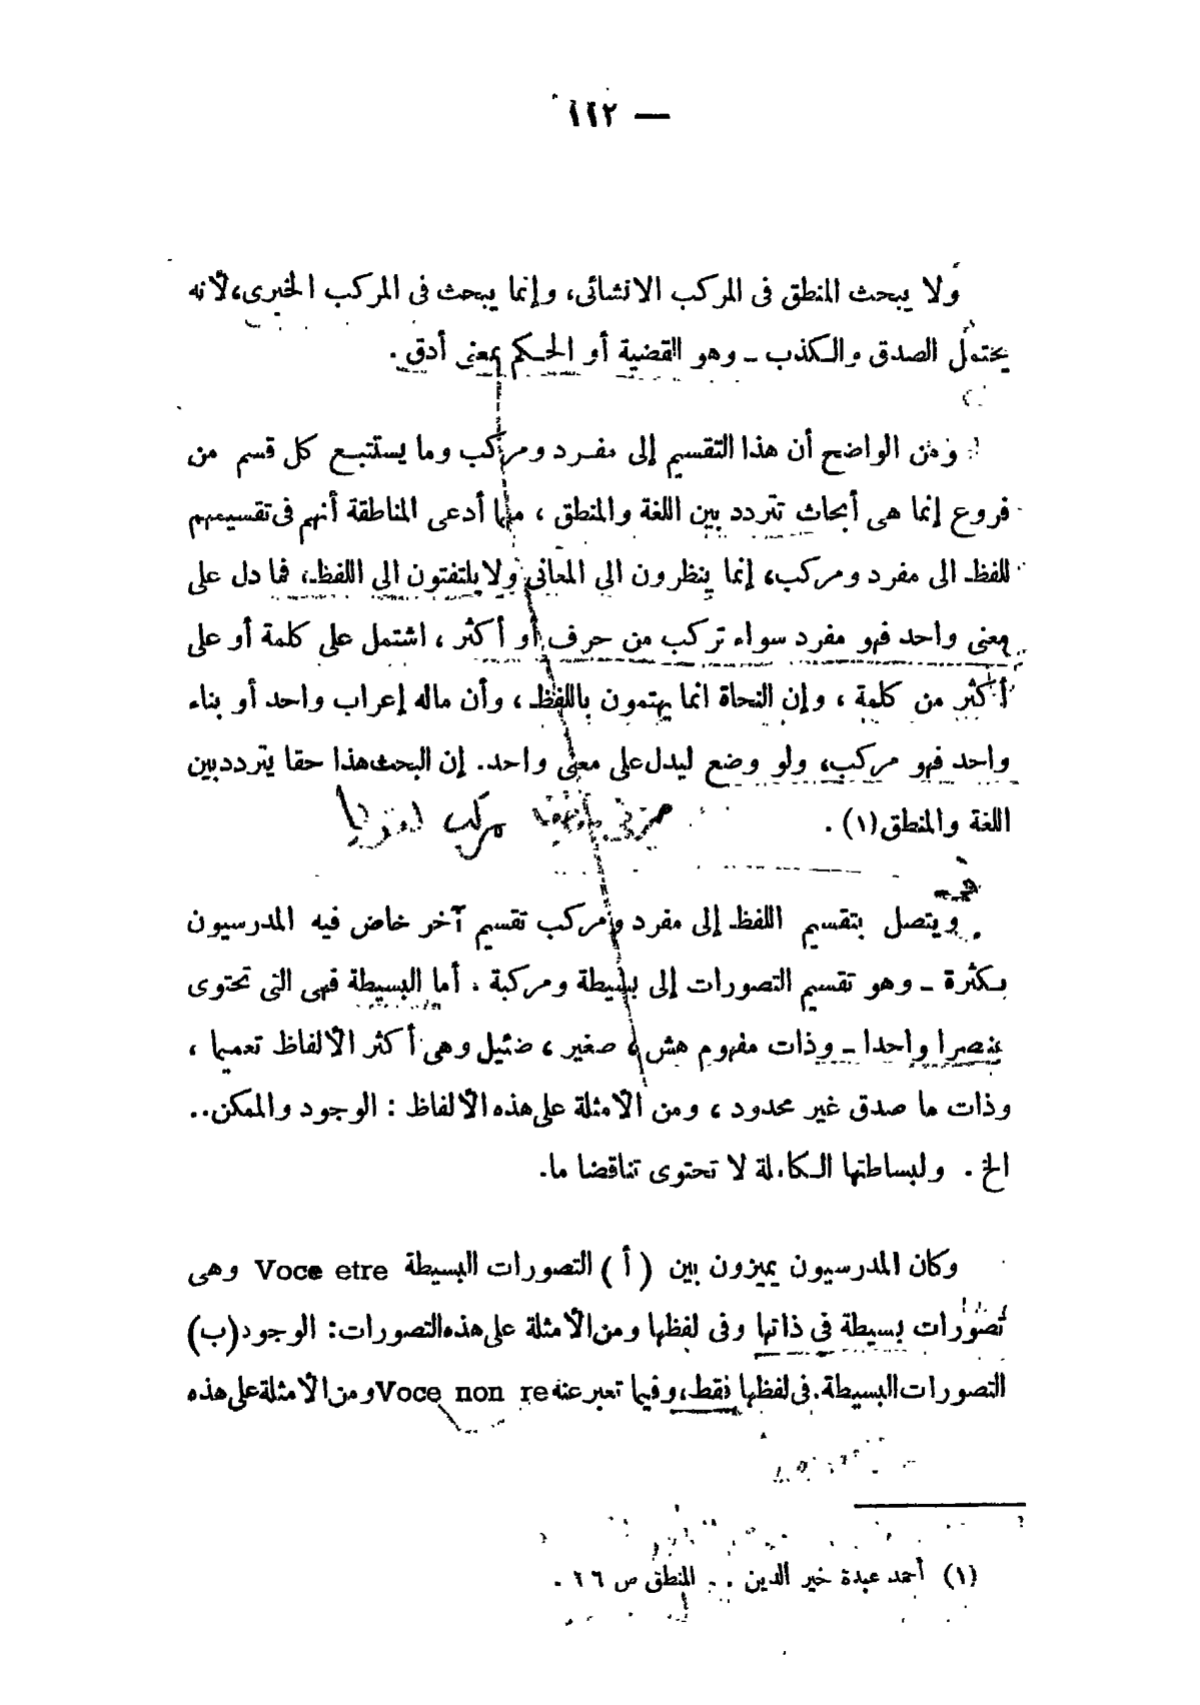 — ١١٢
ولا يبحث المنطق فى المركب الانشائى، وإنما يبحث فى المركب الخبرى، لأنه
يحتمل الصدق والكذب ـ وهو القضية أو الحكم بمعنى أدق .
ومن الواضح أن هذا التقسيم إلى مفرد ومركب وما يستتبع كل قسم من
فروع إنما هى أبحاث تتردد بين اللغة والمنطق ، مهما أدعى المناطقة أنهم فى تقسيمهم
للفظ الى مفرد ومركب، إنما ينظرون الى المعانى ولا يلتفتون الى اللفظ، فما دل على
معنى واحد فهو مفرد سواء تركب من حرف أو أكثر ، اشتمل على كلمة أو على
أكثر من كلمة ، وإن النحاة انما يهتمون باللفظ ، وأن ماله إعراب واحد أو بناء
واحد فهو مركب، ولو وضع ليدل على معنى واحد. إن البحث هذا حقا يتردد بين
اللغة والمنطق(١) .
مركب
ويتصل بتقسيم اللفظ إلى مفرد ومركب تقسيم آخر خاض فيه المدرسيون
بكثرة ـ وهو تقسيم التصورات إلى بسيطة ومركبة . أما البسيطة فهى التى تحتوى
عنصرا واحدا ـ وذات مفهوم هش ، صغير ، ضئيل وهى أكثر الألفاظ تعميما ،
وذات ما صدق غير محدود ، ومن الأمثلة على هذه الألفاظ : الوجود والممكن..
الخ . ولبساطتها الكاملة لا تحتوى تناقضا ما.
وكان المدرسيون يميزون بين ( أ ) التصورات البسيطة Voce etre وهى
تصورات بسيطة فى ذاتها وفى لفظها ومن الأمثلة على هذه التصورات: الوجود (ب)
التصورات البسيطة فى لفظها فقط، وفيما تعبر عنه Voce non re ومن الأمثلة على هذه
(١) أحمد عبدة خير الدين . . المنطق ص ٦٦ .